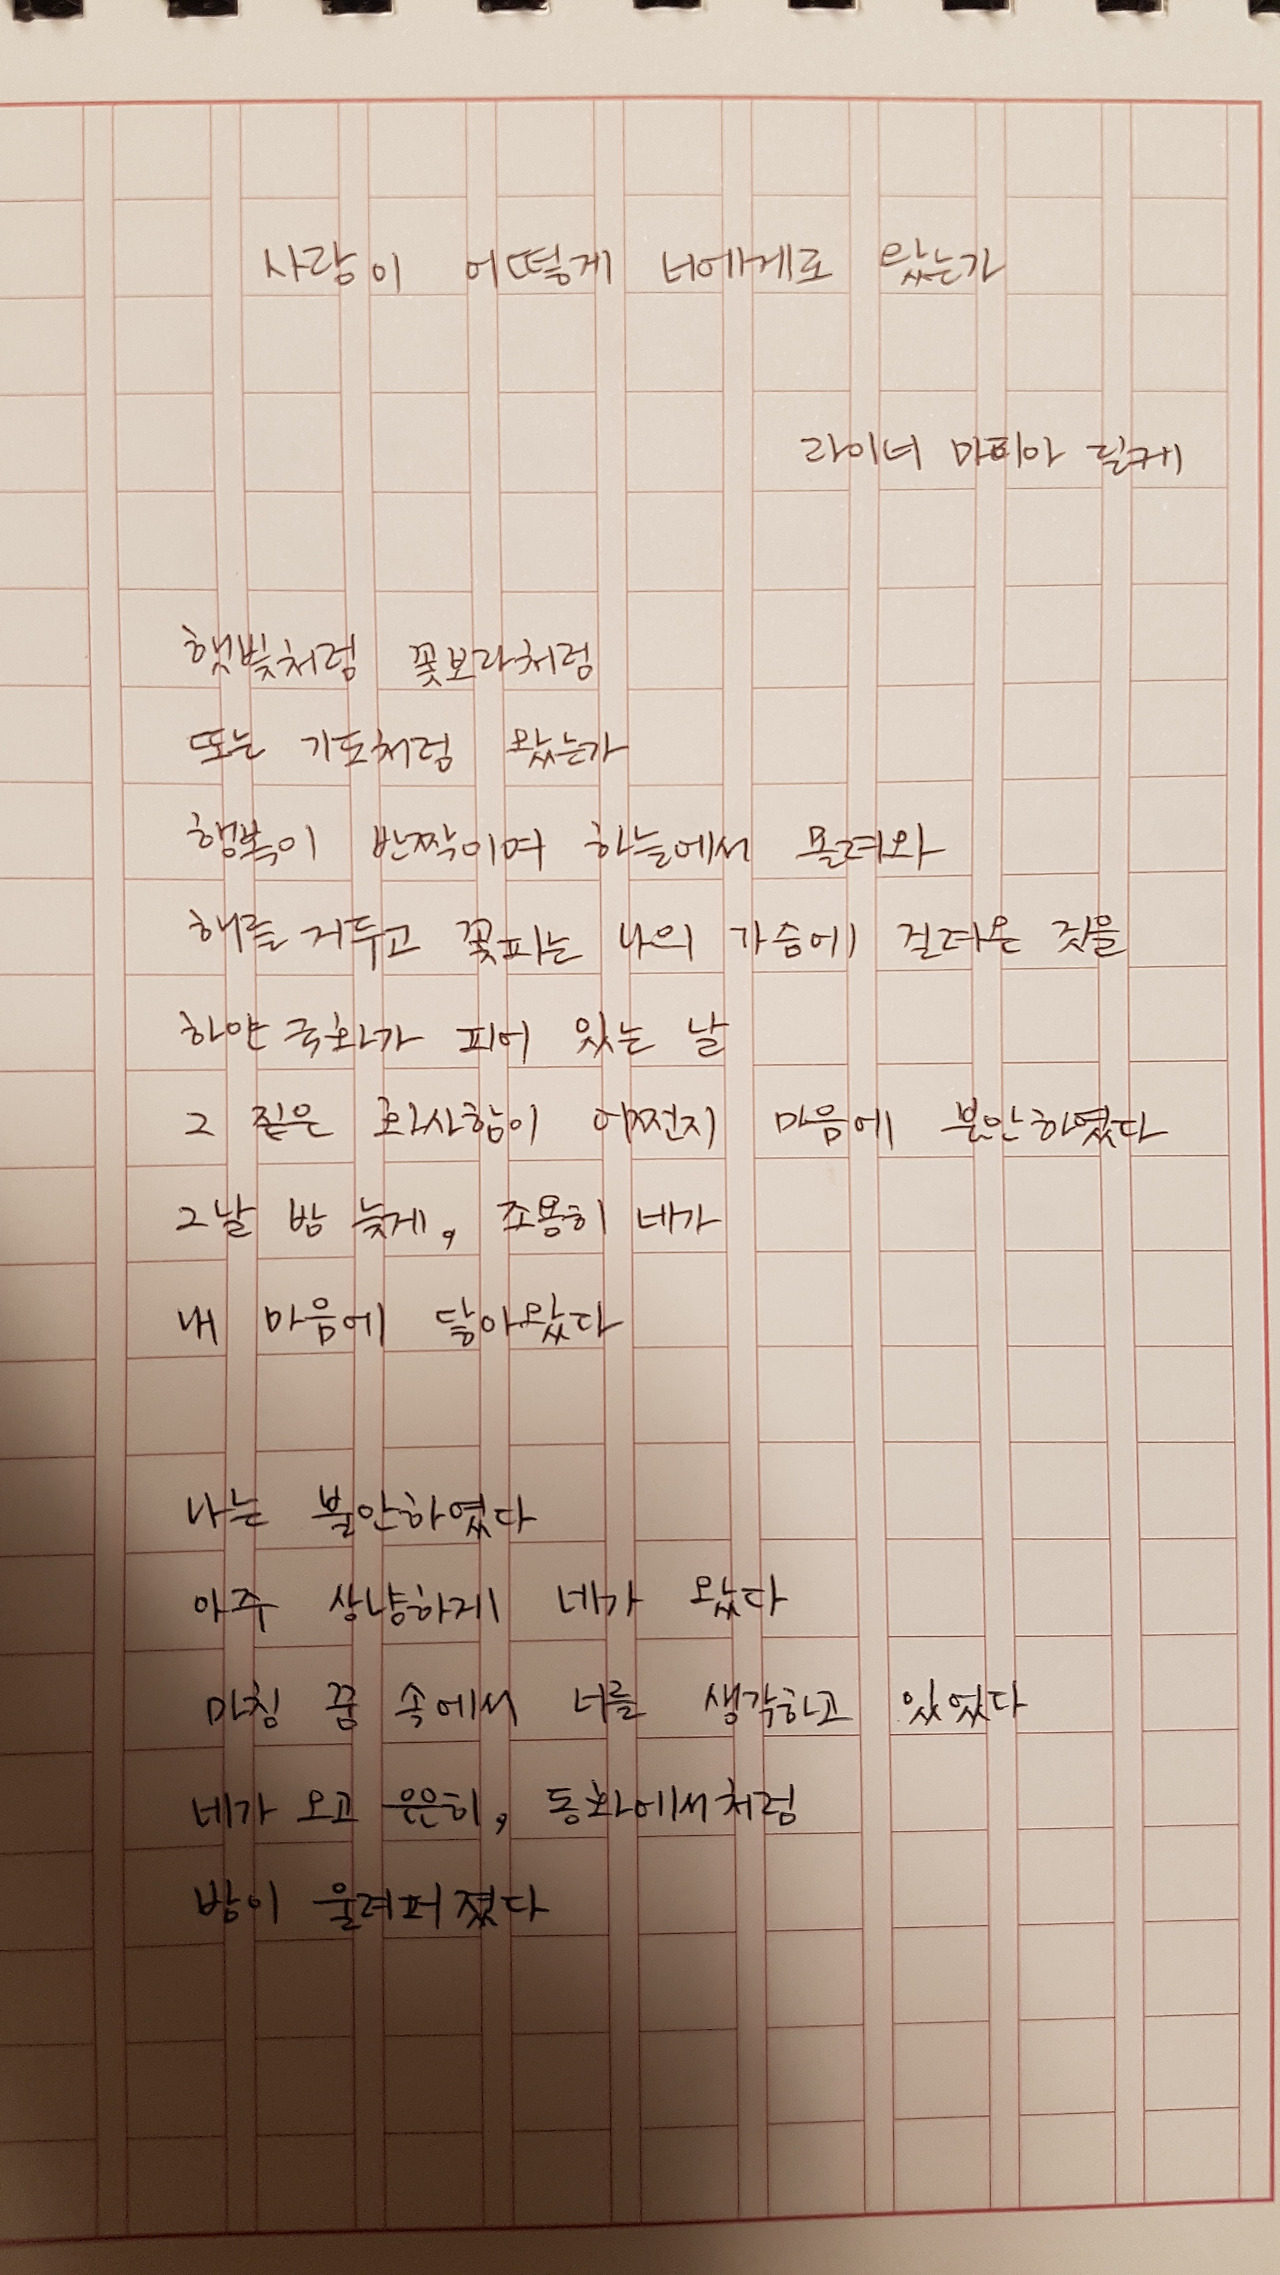 사랑이 어떻게 너에게로 왔는가
라이너 마리아 릴케
햇빛처럼 꽃보라처럼
또는 기도처럼 왔는가
행복이 반짝이며 하늘에서 몰려와
해를 거두고 꽃피는 나의 가슴에 걸려온 것을
하얀 국화가 피어 있는 날
그 짙은 화사함이 어쩐지 마음에 불안하였다
그날 밤 늦게, 조용히 네가
내 마음에 닿아왔다
나는 불안하였다
아주 상냥하게 네가 왔다
마침 꿈 속에서 너를 생각하고 있었다
네가 오고 은은히, 동화에서처럼
밤이 울려퍼졌다